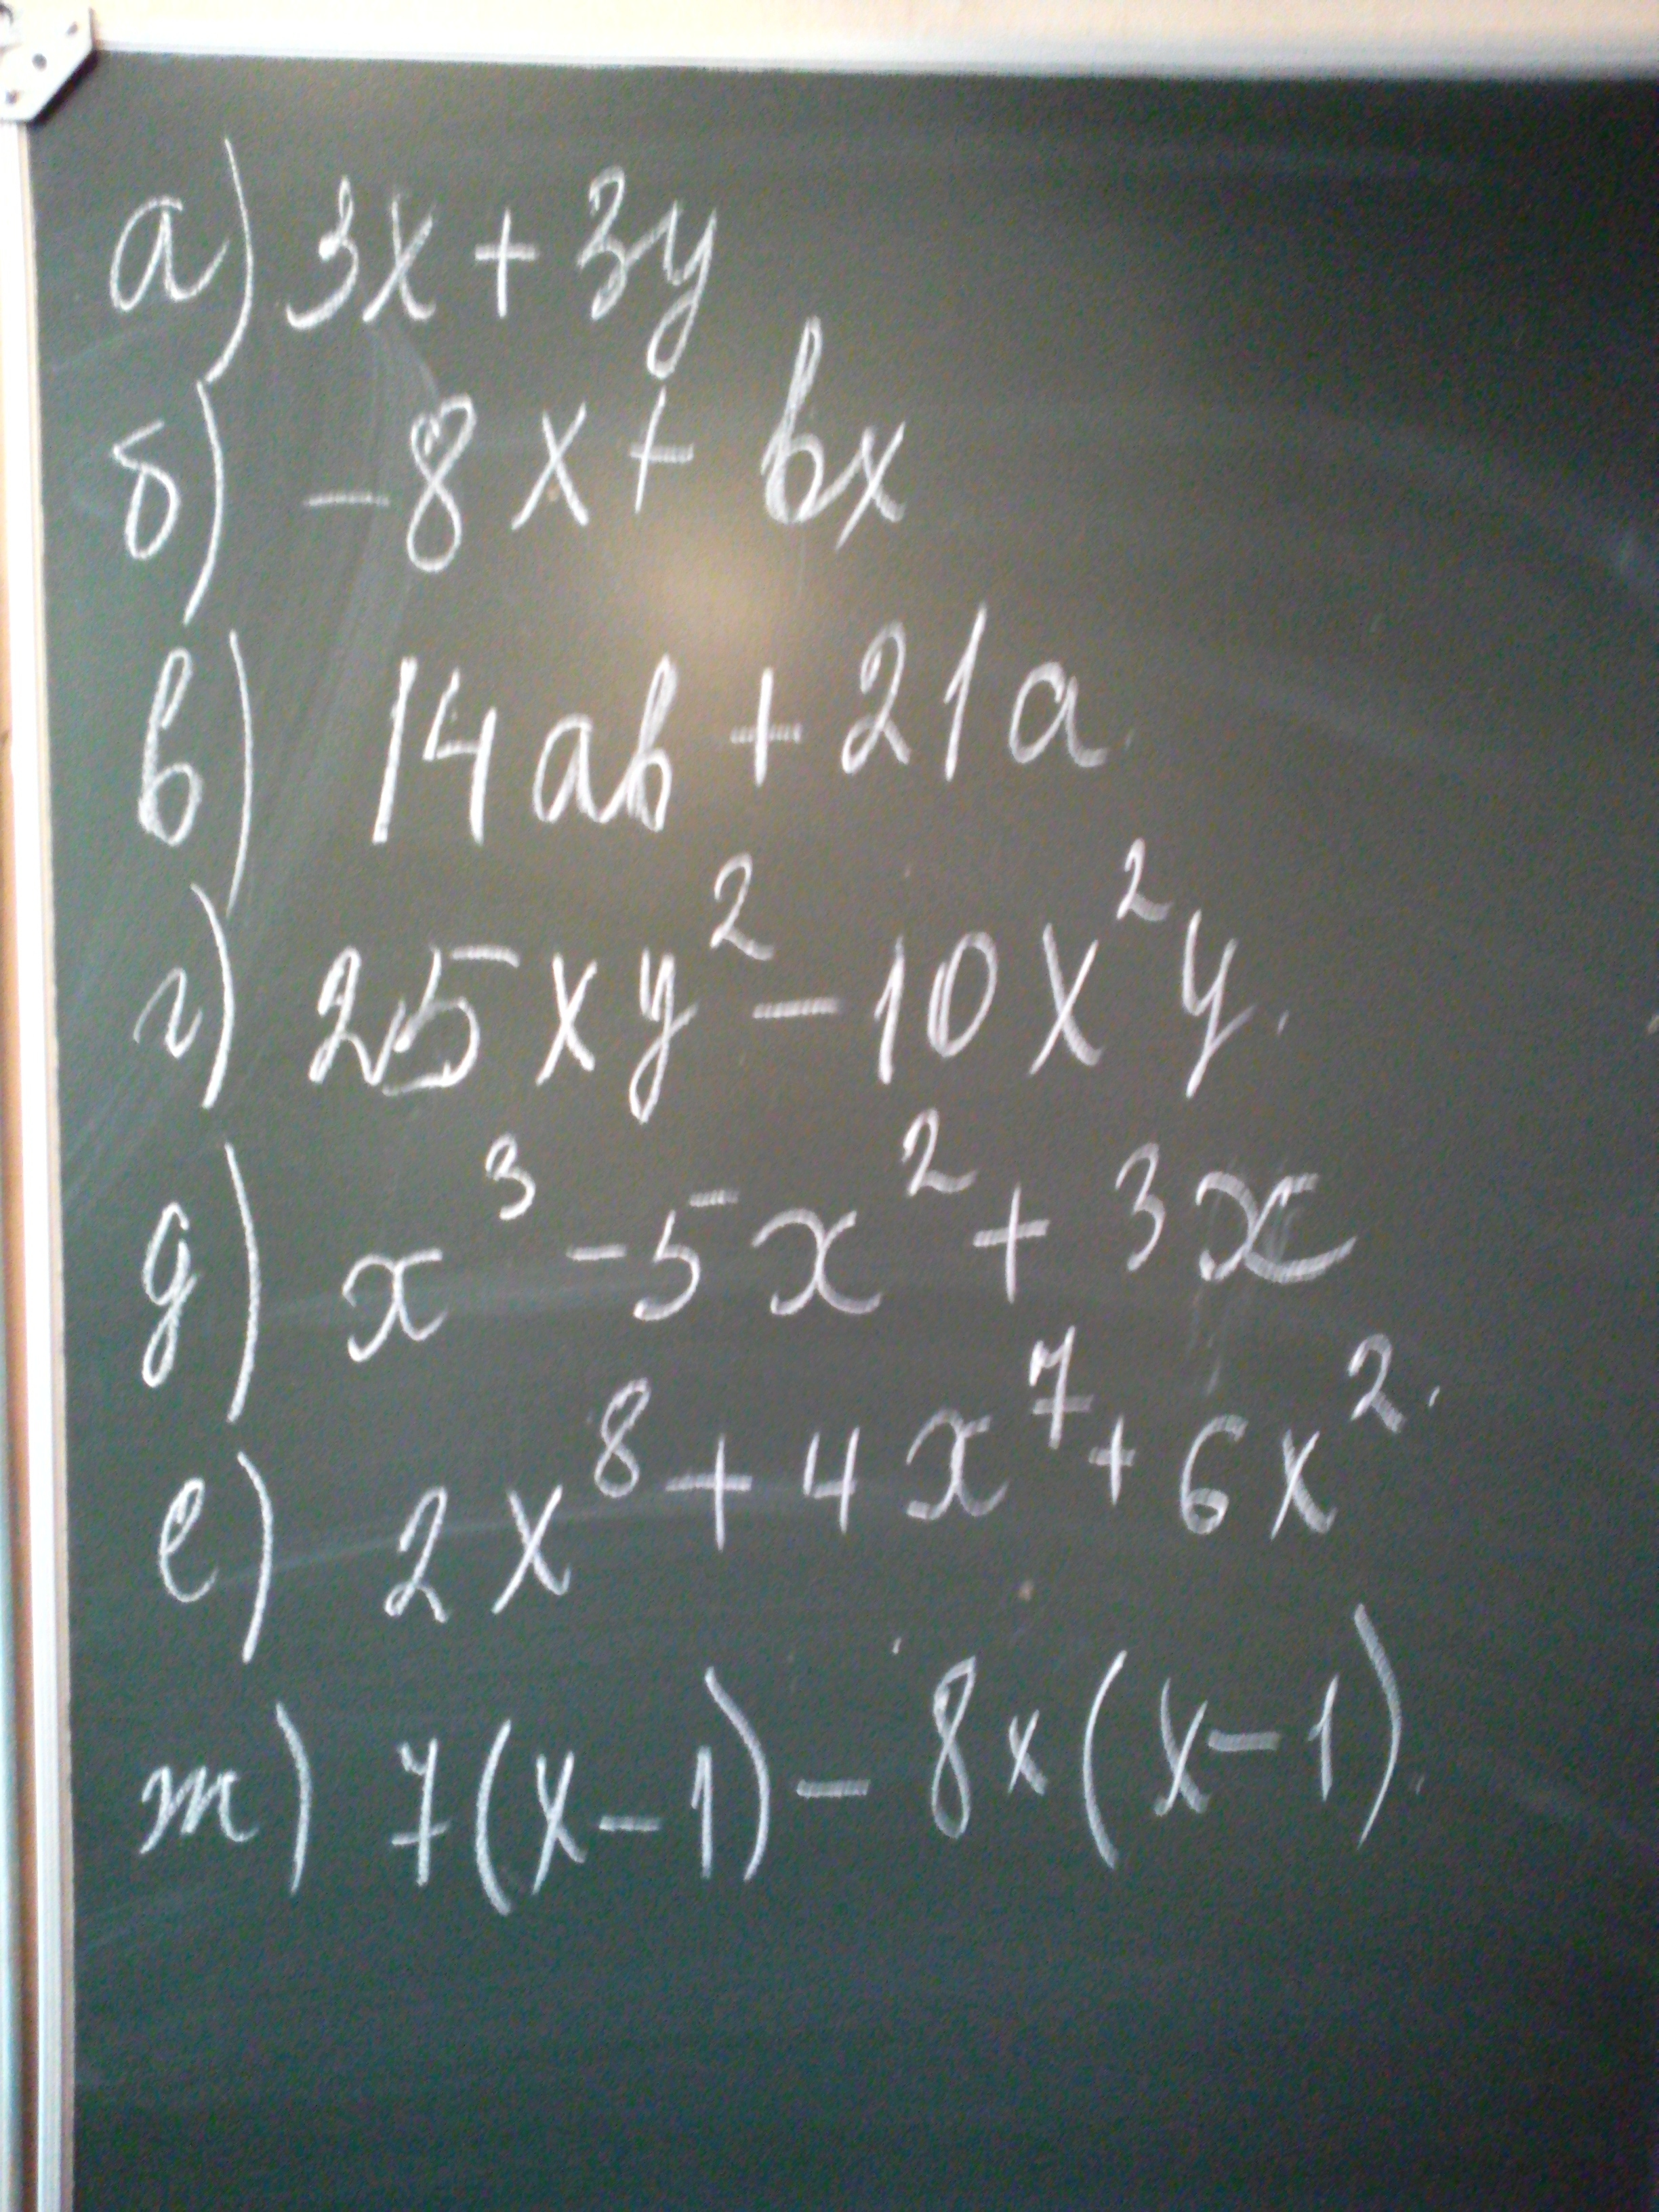 а) 3x + 3y
б) -8x + bx
в) 14ab + 21a
г) 25xy² - 10x²y.
д) x³ - 5x² + 3x
е) 2x⁸ + 4x⁷ + 6x².
т) 7(x-1) - 8x(x-1)